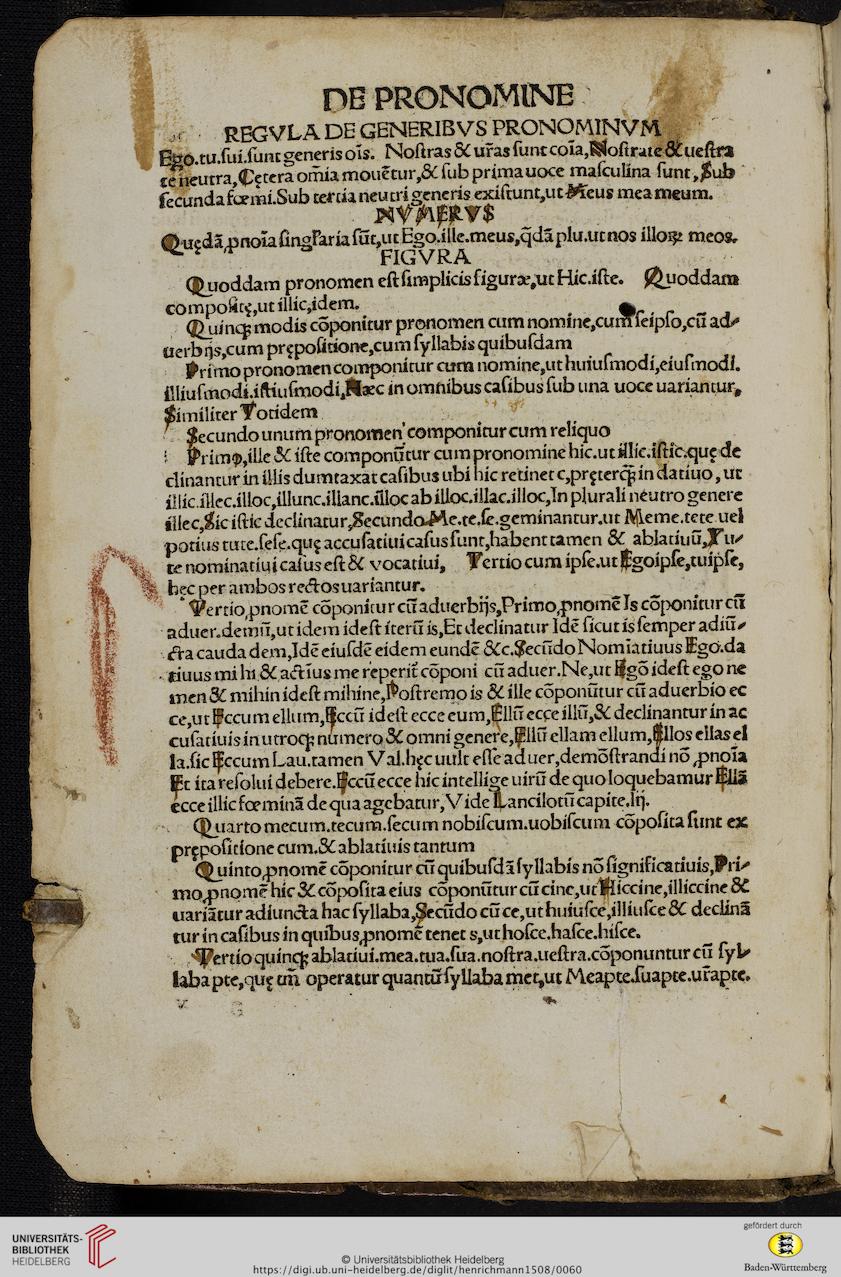 DE PRONOMINE
REGVLA DE GENERIBVS PRONOMINVM
Ego.tu.sui.sunt generis oīs. Nostras & ur̄as sunt coīa,Nostrate & uestra
te neutra,Cętera om̄ia mouētur,& sub prima uoce masculina sunt,Sub
secunda fœmi.Sub tertia neutri generis existunt,ut Meus mea meum.
NVMERVS
Quędā,ꝓnoīa singl'aria sūt,ut Ego.ille.meus,q̄dā plu.ut nos illoꝝ meos.
FIGVRA
Quoddam pronomen est simplicis figuræ,ut Hic.iste. Quoddam
compositę,ut illic,idem.
Quinqꝫ modis cōponitur pronomen cum nomine,cum seipso,cū ad-
uerbijs,cum prępositione,cum syllabis quibusdam
Primo pronomen componitur cum nomine,ut huiusmodi,eiusmodi.
illiusmodi.istiusmodi,Hæc in omnibus casibus sub una uoce uariantur,
Similiter Totidem
Secundo unum pronomen componitur cum reliquo
Primo,ille & iste componūtur cum pronomine hic.ut illic.istic.quę de
clinantur in illis dumtaxat casibus ubi hic retinet c,pręterqꝫ in datiuo, ut
illic.illec.illoc,illunc.illanc.illoc ab illoc.illac.illoc,In plurali neutro genere
illec,Sic istic declinatur,Secundo.Me.te.se.geminantur.ut Meme.tete uel
potius tute.sese.quę accusatiui casus sunt,habent tamen & ablatiuū,Tu-
te nominatiui casus est & vocatiui, Tertio cum ipse.ut Egoipse,tuipse,
hęc per ambos rectos uariantur.
Tertio,ꝓnomē cōponitur cū aduerbijs,Primo,ꝓnomē Is cōponitur cū
aduer.demū,ut idem idest iterū is,Et declinatur Idē sicut is semper adiū-
cta cauda dem,Idē eiusdē eidem eundē &c.Secūdo Nomiatiuus Ego.da
tiuus mi hi & actīus me reperit̄ cōponi cū aduer.Ne,ut Egō idest ego ne
men & mihin idest mihine,Postremo is & ille cōponūtur cū aduerbio ec
ce,ut Eccum ellum,Eccū idest ecce eum,Ellū ecce illū,& declinantur in ac
cusatiuis in utroqꝫ numero & omni genere,Ellū ellam ellum,Ellos ellas el
la.sic Eccum Lau.tamen Val.hęc uult esse aduer,demōstrandi nō ,ꝓnoīa
Et ita resolui debere.Eccū ecce hic intellige uirū de quo loquebamur Ellā
ecce illic fœminā de qua agebatur,Vide Lancilotū capite.lij.
Quarto mecum.tecum.secum nobiscum.uobiscum cōposita sunt ex
prępositione cum.& ablatiuis tantum
Quinto,ꝓnomē cōponitur cū quibusdā syllabis nō significatiuis,Pri-
mo,ꝓnomē hic & cōposita eius cōponūtur cū cine,ut Hiccine,illiccine &
uariātur adiuncta hac syllaba,Secūdo cū ce,ut huiusce,illiusce & declinā
tur in casibus in quibus,ꝓnomē tenet s,ut hosce.hasce.hisce.
Tertio quinqꝫ ablatiui.mea.tua.sua.nostra.uestra.cōponuntur cū syl-
laba pte,quę tm̄ operatur quantū syllaba met,ut Meapte.suapte.ur̄apte.
UNIVERSITÄTS-
BIBLIOTHEK
HEIDELBERG
© Universitätsbibliothek Heidelberg
https://digi.ub.uni-heidelberg.de/diglit/henrichmann1508/0060
gefördert durch
Baden-Württemberg